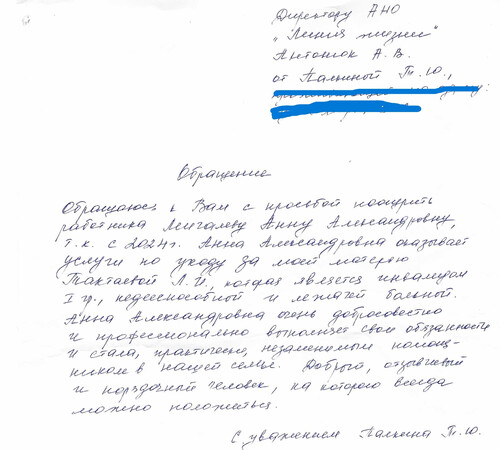 Директору АНО
"Линия жизни"
Антонюк А. В.
от Палкиной Т. Ю.,
Обращение
Обращаюсь к Вам с просьбой поощрить
работника Мигалеву Анну Александровну,
т.к. с 2024г. Анна Александровна оказывает
услуги по уходу за моей матерью
Тактаевой Л. И., которая является инвалидом
I гр., недееспособной и лежачей больной.
Анна Александровна очень добросовестно
и профессионально выполняет свои обязанности
и стала, практически, незаменимым помощ-
ником в нашей семье. Добрый, отзывчивый
и порядочный человек, на которого всегда
можно положиться.
С уважением Палкина Т. Ю.